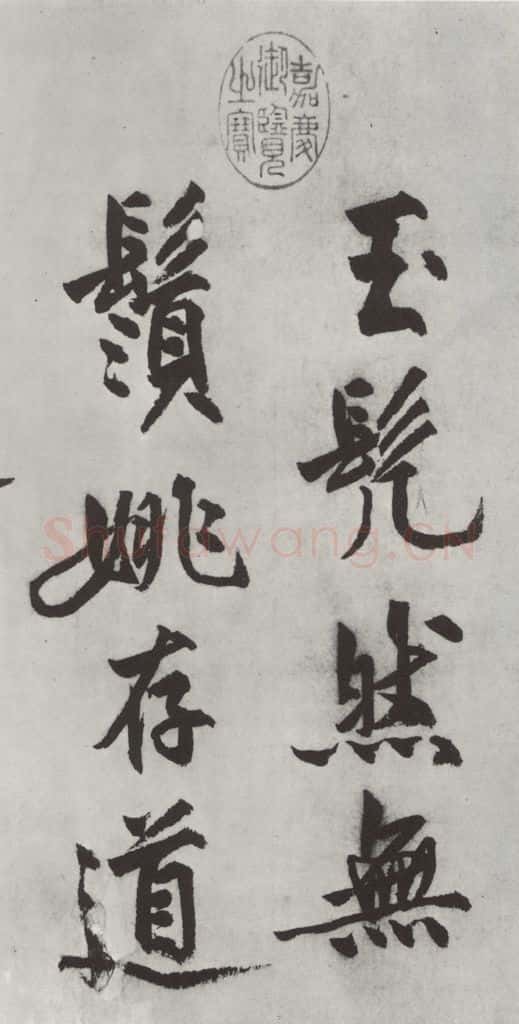 嘉慶
御覽
之寶
玉髠然無
鬚姚存道
Shufawang.CN